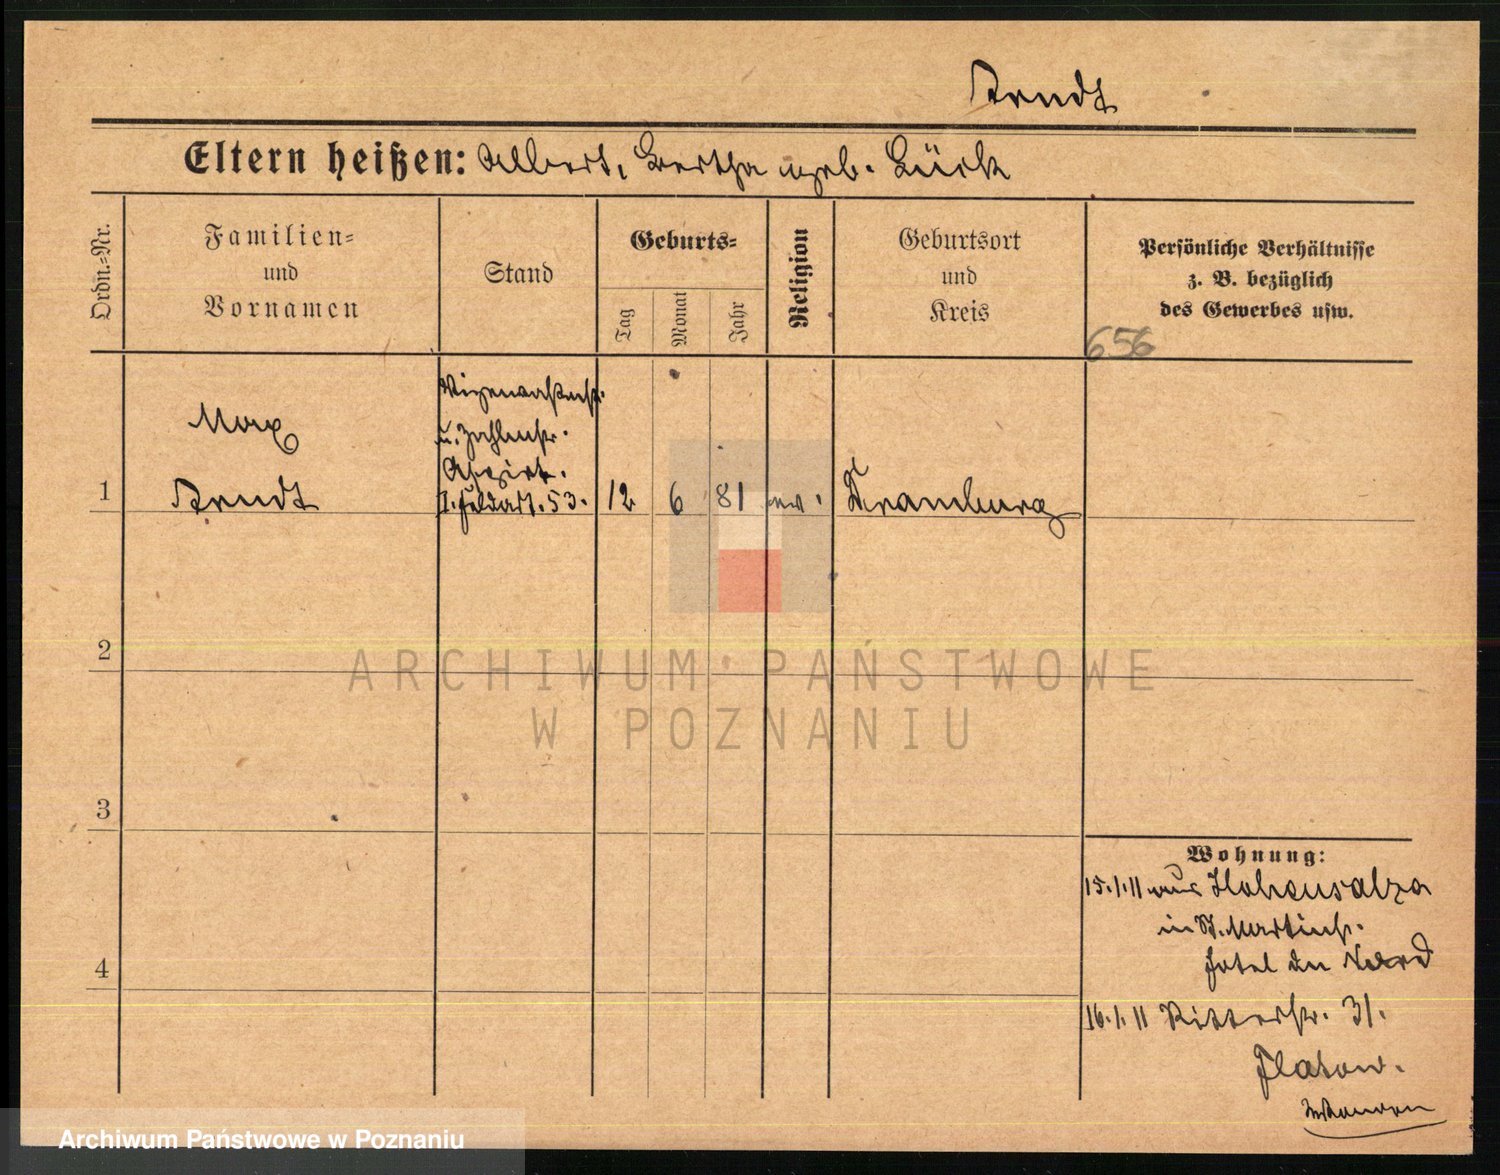 Arndt
Eltern heißen: Albert, Bertha geb. Lück
Ordn.-Nr.
Familien-
und
Vornamen
Stand
Geburts-
Tag
Monat
Jahr
Religion
Geburtsort
und
Kreis
Persönliche Verhältnisse
z. B. bezüglich
des Gewerbes usw.
656
1
Max
Arndt
u. Zahlmstr.
Aspirt.
I. Feldart. 53.
12
6
81
ev.
Dramburg
2
3
4
Wohnung:
15.1.11 aus Hohensalza
in St. Martinstr.
Hotel du Nord
16.1.11 Ritterstr. 31.
Flatow.
ARCHIWUM PAŃSTWOWE
W POZNANIU
Archiwum Państwowe w Poznaniu